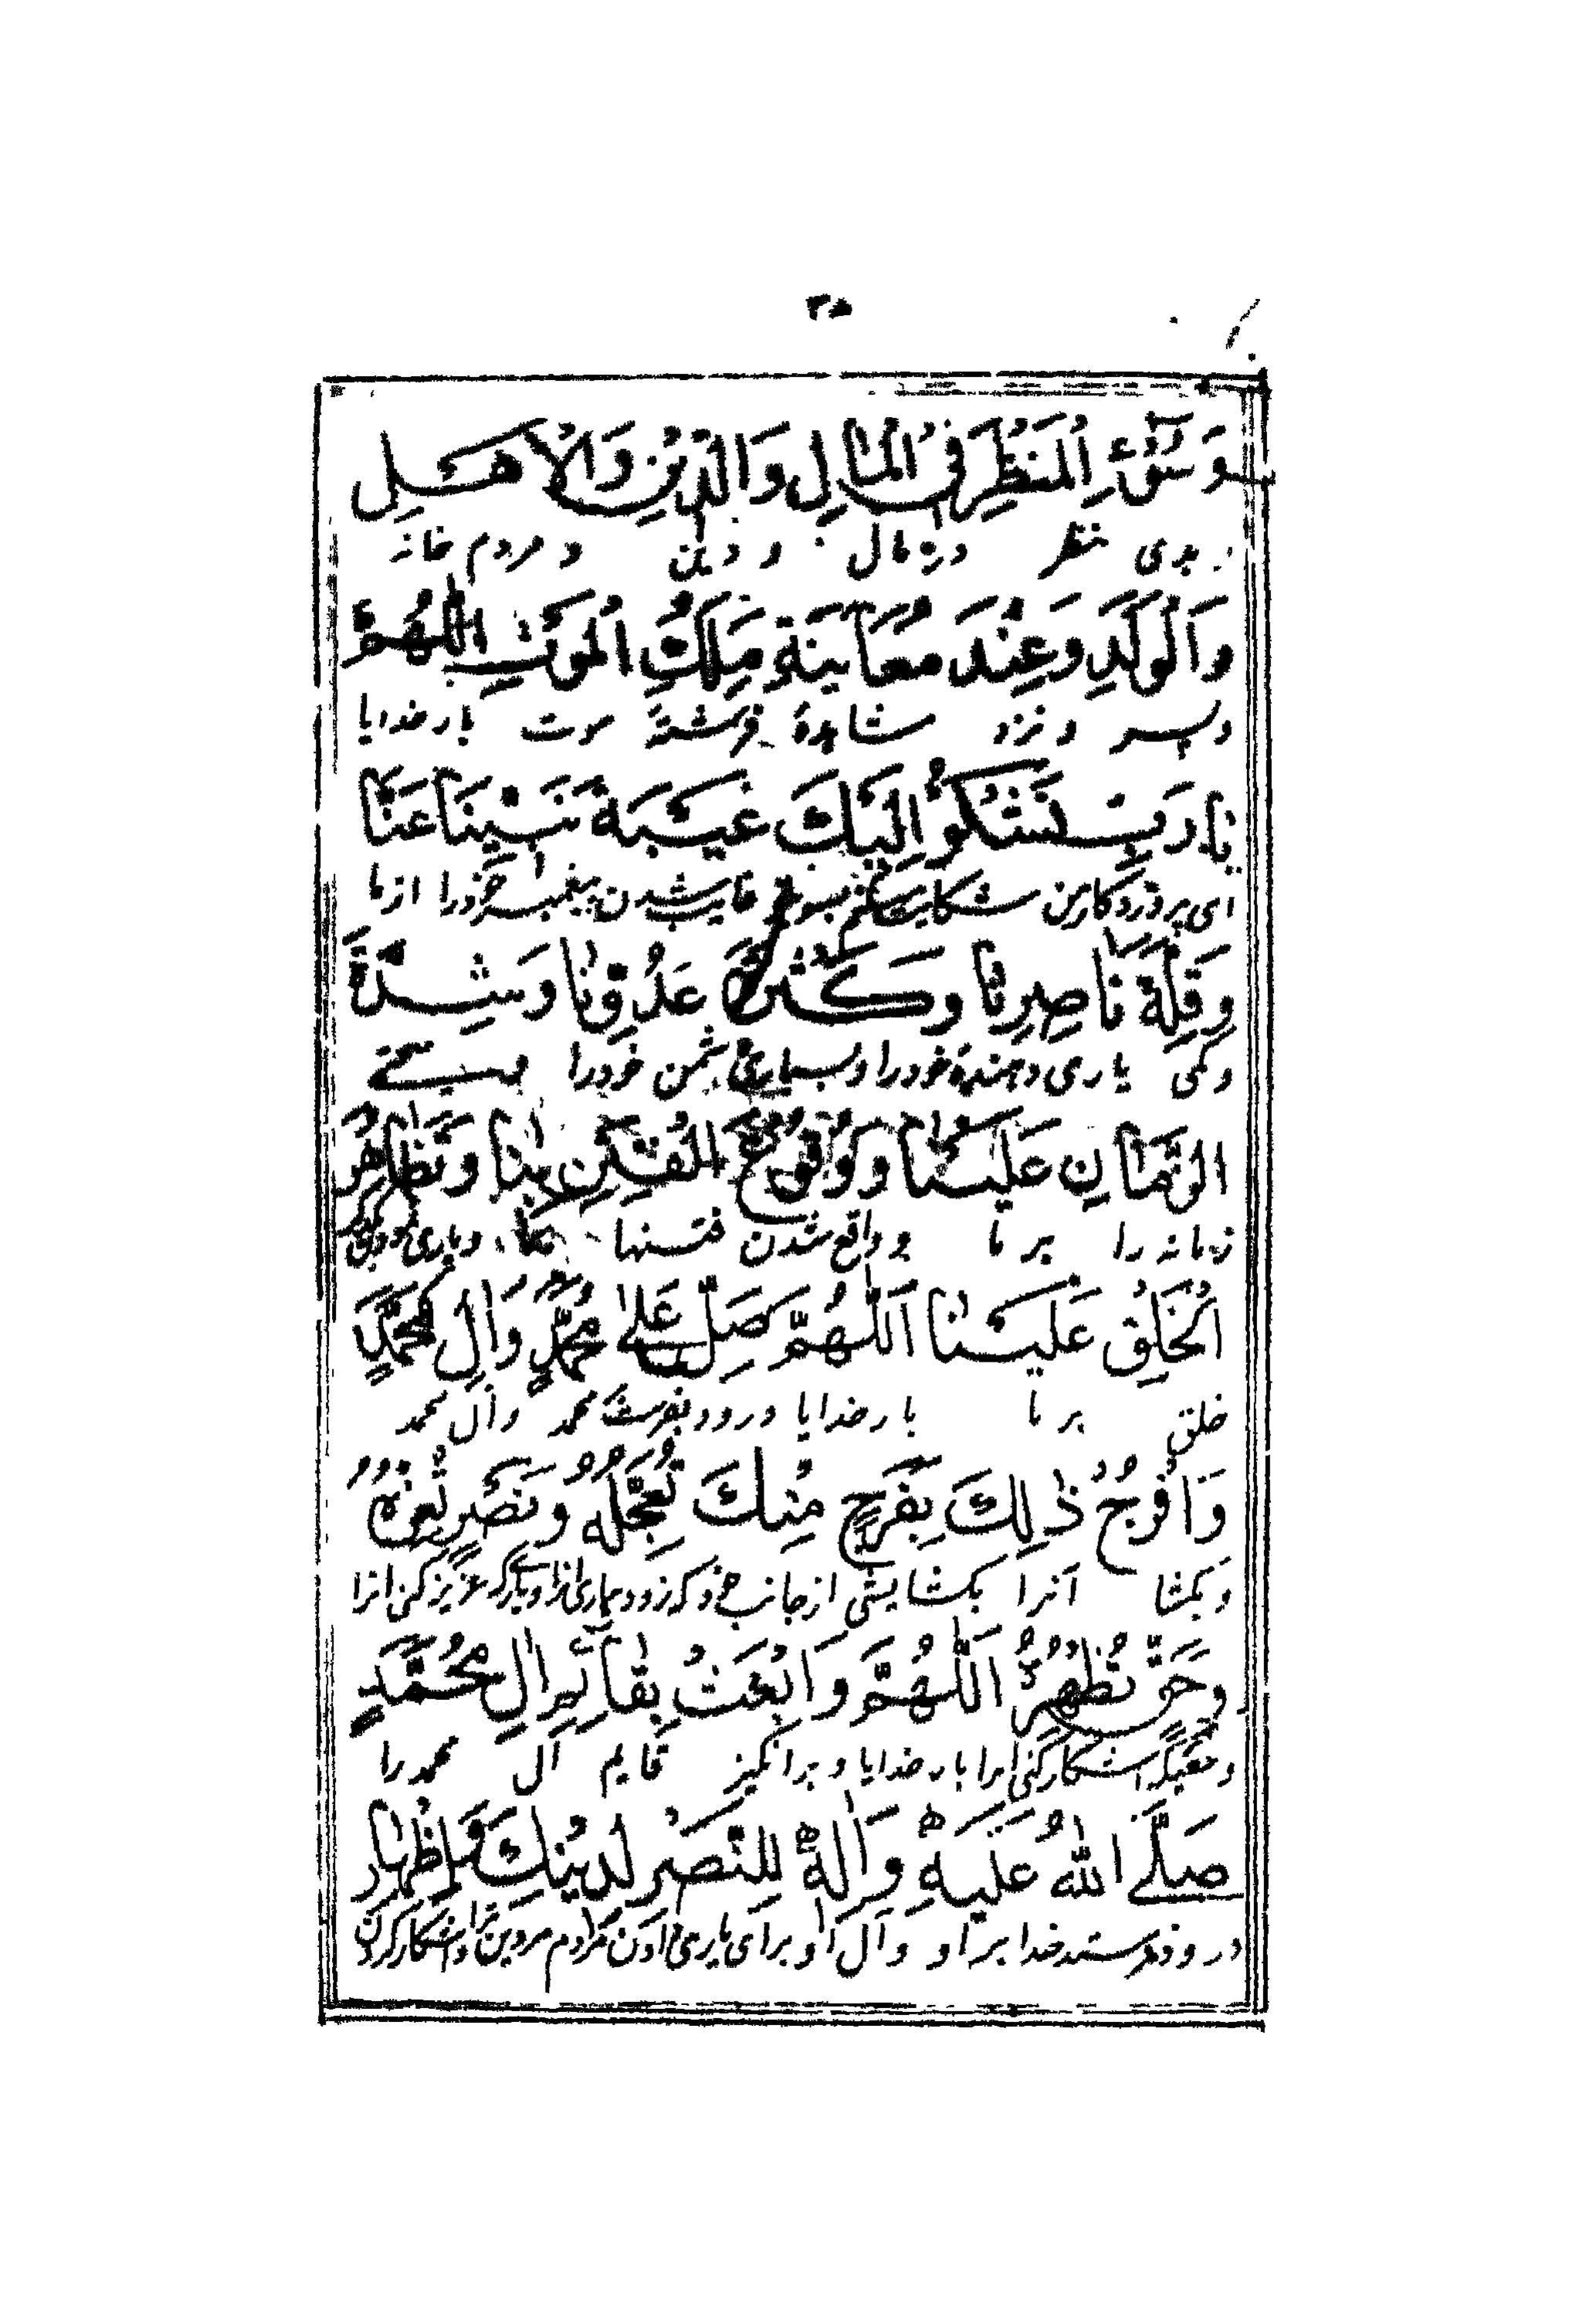 ۳۵
وَسُوْٓءِ الْمَنْظَرِ فِی الْمَالِ وَالدِّیْنِ وَالْاَهْلِ
بدی منظر در مال و دین و مردم خانه
وَالْوَلَدِ وَعِنْدَ مُعَایَنَةِ مَلَكِ الْمَوْتِ اَللّٰهُمَّ
و پسر و نزد مشاهدۀ فرشتۀ موت بار خدایا
یَا رَبِّ نَشْكُوْ اِلَیْكَ غَیْبَةَ نَبِیِّنَا عَنَّا
ای پروردگار من شکایت میکنم بسوی تو غایب شدن پیغمبر خود را از ما
وَقِلَّةَ نَاصِرِنَا وَكَثْرَةَ عَدُوِّنَا وَشِدَّةَ
و کمی یاری دهندۀ خود را و بسیاری دشمن خود را و سختی
الزَّمَانِ عَلَیْنَا وَوُقُوْعَ الْفِتَنِ بِنَا وَتَظَاهُرَ
زمانه را بر ما و واقع شدن فتنها بما و یاری نمودن
الْخَلْقِ عَلَیْنَا اَللّٰهُمَّ صَلِّ عَلٰی مُحَمَّدٍ وَّاٰلِ مُحَمَّدٍ
خلق بر ما بار خدایا درود بفرست محمد وآل محمد
وَافْرُجْ ذٰلِكَ بِفَرَجٍ مِنْكَ تُعَجِّلُهٗ وَنَصْرٍ تُعِزُّهٗ
و بکشا آنرا بکشایشی از جانب خود که زود بیاری انرا و یاری که عزیز کنی انرا
وَحَقٍّ تُظْهِرُهٗ اَللّٰهُمَّ وَابْعَثْ بِقَآئِمِ اٰلِ مُحَمَّدٍ
و حقیکه اشکار کنی انرا بار خدایا و برانگیز قایم آل محمد را
صَلَّی اللّٰهُ عَلَیْهِ وَاٰلِهٖ لِلنَّصْرِ لِدِیْنِكَ وَاِظْهَارِ
درود فرستد خدا بر او و آل او برای یاری دادن مردم مر دین ترا و اشکار کردن